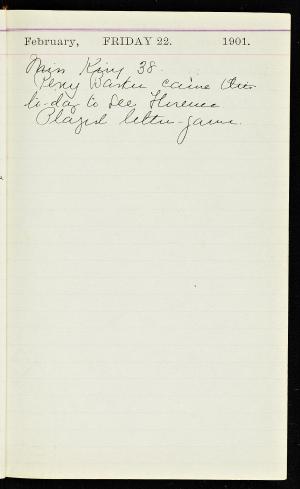 February, FRIDAY 22. 1901.
Miss King 38
Percy Baxter came
to-day to see Florence
Played letter-game.